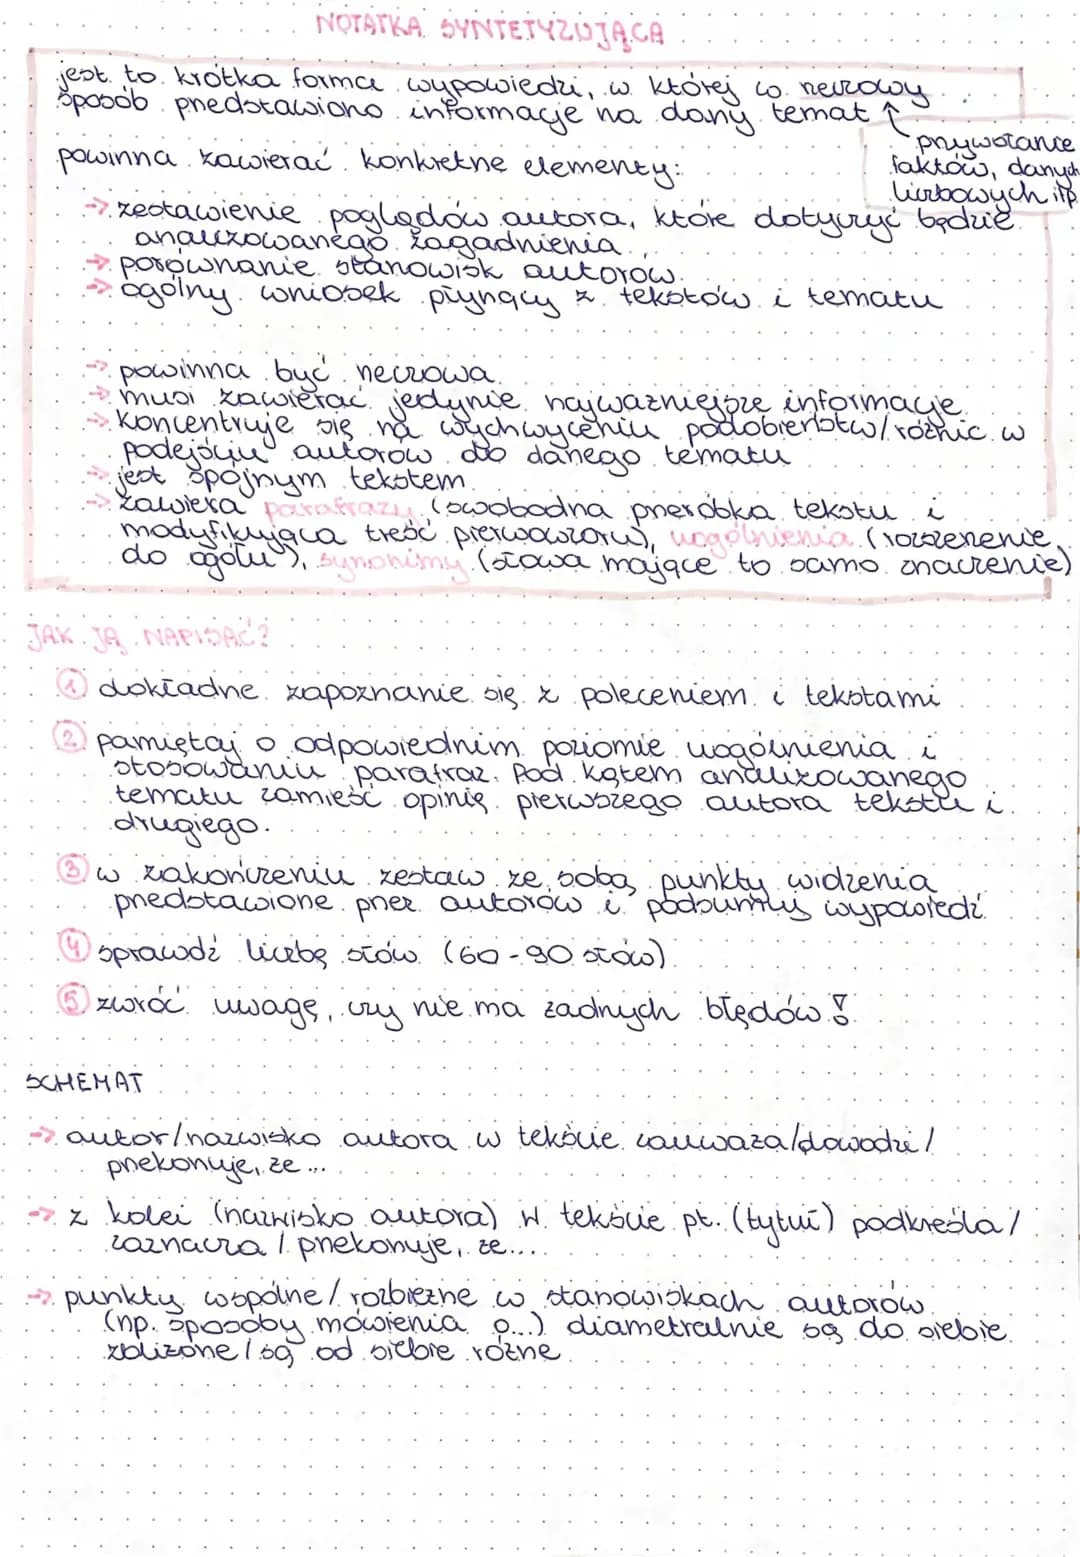 NOTATKA SYNTETYZUJĄCA
jest to krótka forma wypowiedzi, w której w rzeczowy
sposób przedstawiono informacje na dany temat ↑
przywołanie
faktów, danych
liczbowych itp
powinna zawierać konkretne elementy:
→ zestawienie poglądów autora, które dotyczyć będzie
analizowanego zagadnienia
→ porównanie stanowisk autorów
→ ogólny wniosek płynący z tekstów i tematu
→ powinna być rzeczowa
→ musi zawierać jedynie najważniejsze informacje
→ koncentruje się na wychwyceniu podobieństw/różnic w
podejściu autorów do danego tematu
→ jest spójnym tekstem
→ zawiera parafrazy (swobodna przeróbka tekstu i
modyfikująca treść pierwowzoru), uogólnienia (rozszerzenie
do ogółu), synonimy (słowa mające to samo znaczenie)
JAK JĄ NAPISAĆ?
1 dokładne zapoznanie się z poleceniem i tekstami
2 pamiętaj o odpowiednim poziomie uogólnienia i
stosowaniu parafraz. Pod kątem analizowanego
tematu zamieść opinię pierwszego autora tekstu i
drugiego.
3 w zakończeniu zestaw ze sobą punkty widzenia
przedstawione przez autorów i podsumuj wypowiedź
4 sprawdź liczbę słów (60-90 słów)
5 zwróć uwagę, czy nie ma żadnych błędów!
SCHEMAT
→ autor/nazwisko autora w tekście zauważa/dowodzi/
przekonuje, że...
→ z kolei (nazwisko autora) w tekście pt. (tytuł) podkreśla/
zaznacza / przekonuje, że...
→ punkty wspólne/rozbieżne w stanowiskach autorów
(np. sposoby mówienia o...) diametralnie są do siebie
zbliżone/są od siebie różne